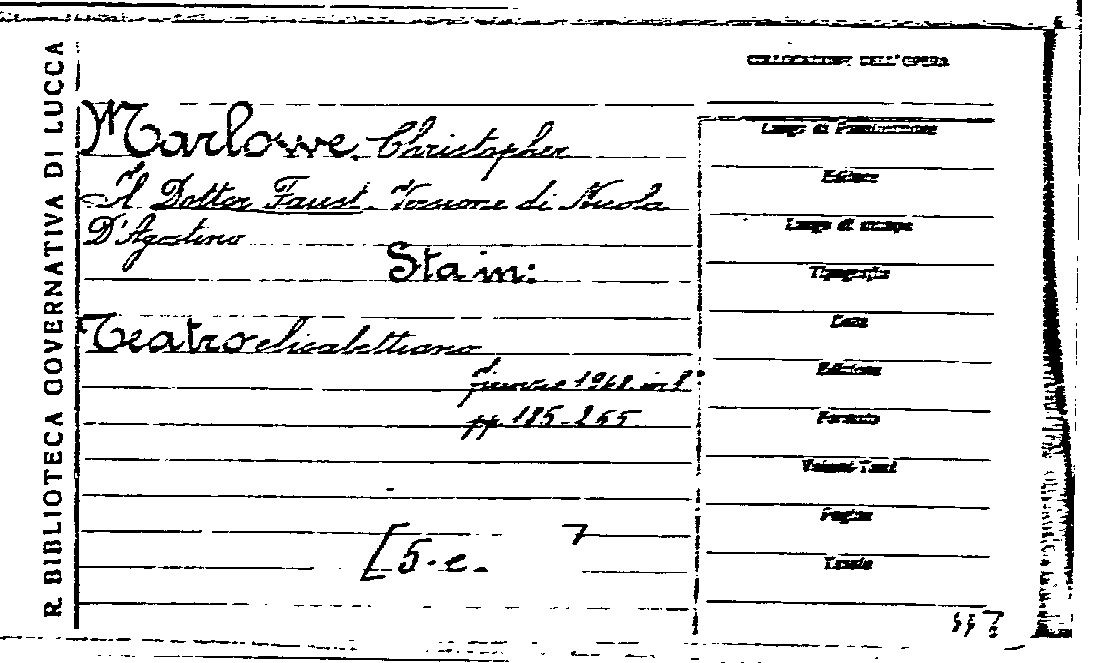 R. BIBLIOTECA GOVERNATIVA DI LUCCA
COLLOCAZIONE DELL'OPERA
Marlowe, Christopher
Il Dottor Faust. Versione di Nicola
D'Agostino
Sta in:
Teatro elisabettiano
Firenze 1948. in 8°
pp. 185-255
[S. e.
Luogo di Pubblicazione
Editore
Luogo di stampa
Tipografia
Data
Edizione
Formato
Volumi Tomi
Pagine
Tavole